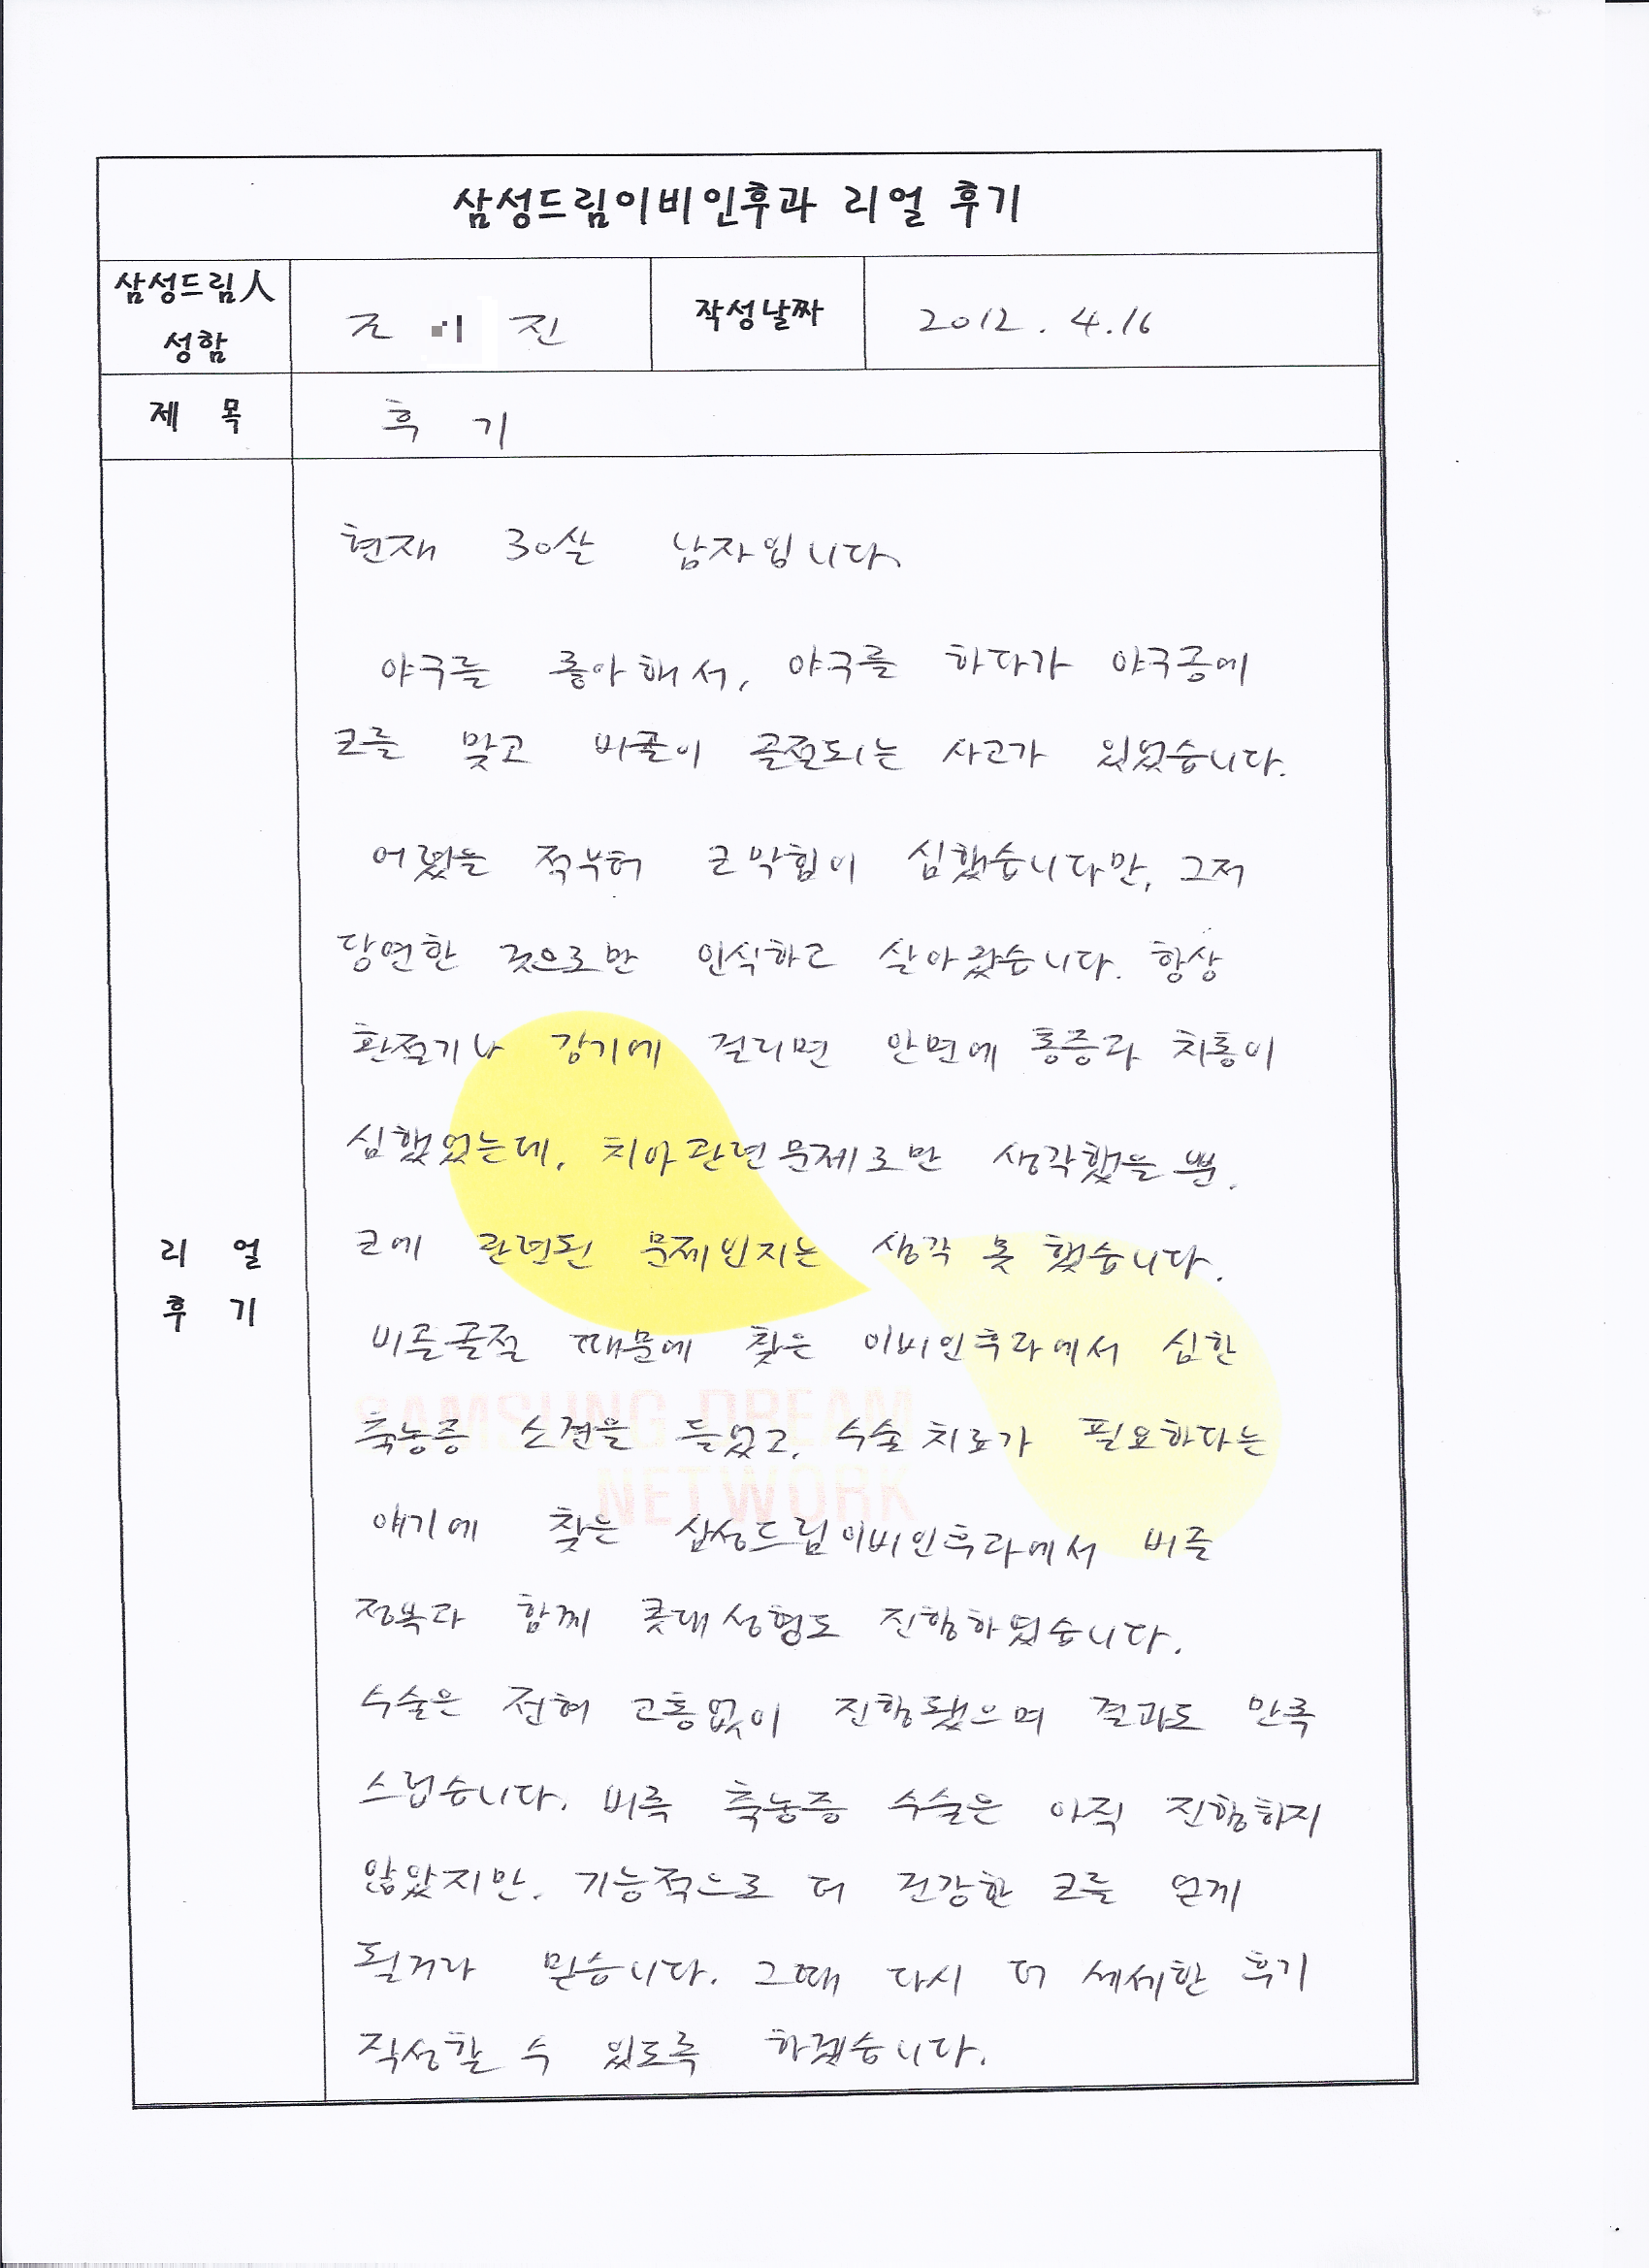 삼성드림이비인후과 리얼 후기
삼성드림人
성함
조 진
작성날짜
2012. 4. 16
제 목
후 기
현재 30살 남자입니다.
야구를 좋아해서, 야구를 하다가 야구공에
코를 맞고 비골이 골절되는 사고가 있었습니다.
어렸을 적부터 코막힘이 심했습니다만, 그저
당연한 것으로만 인식하고 살아왔습니다. 항상
환절기나 감기에 걸리면 안면에 통증과 치통이
심했었는데, 치아관련문제로만 생각했을 뿐.
코에 관련된 문제인지는 생각 못 했습니다.
비골골절 때문에 찾은 이비인후과에서 심한
축농증 소견을 들었고, 수술치료가 필요하다는
얘기에 찾은 삼성드림이비인후과에서 비골
정복과 함께 콧대성형도 진행하였습니다.
수술은 전혀 고통없이 진행됐으며 결과도 만족
스럽습니다. 비록 축농증 수술은 아직 진행하지
않았지만, 기능적으로 더 건강한 코를 얻게
될거라 믿습니다. 그때 다시 더 세세한 후기
작성할 수 있도록 하겠습니다.
리 얼
후 기
SAMSUNG DREAM
NETWORK